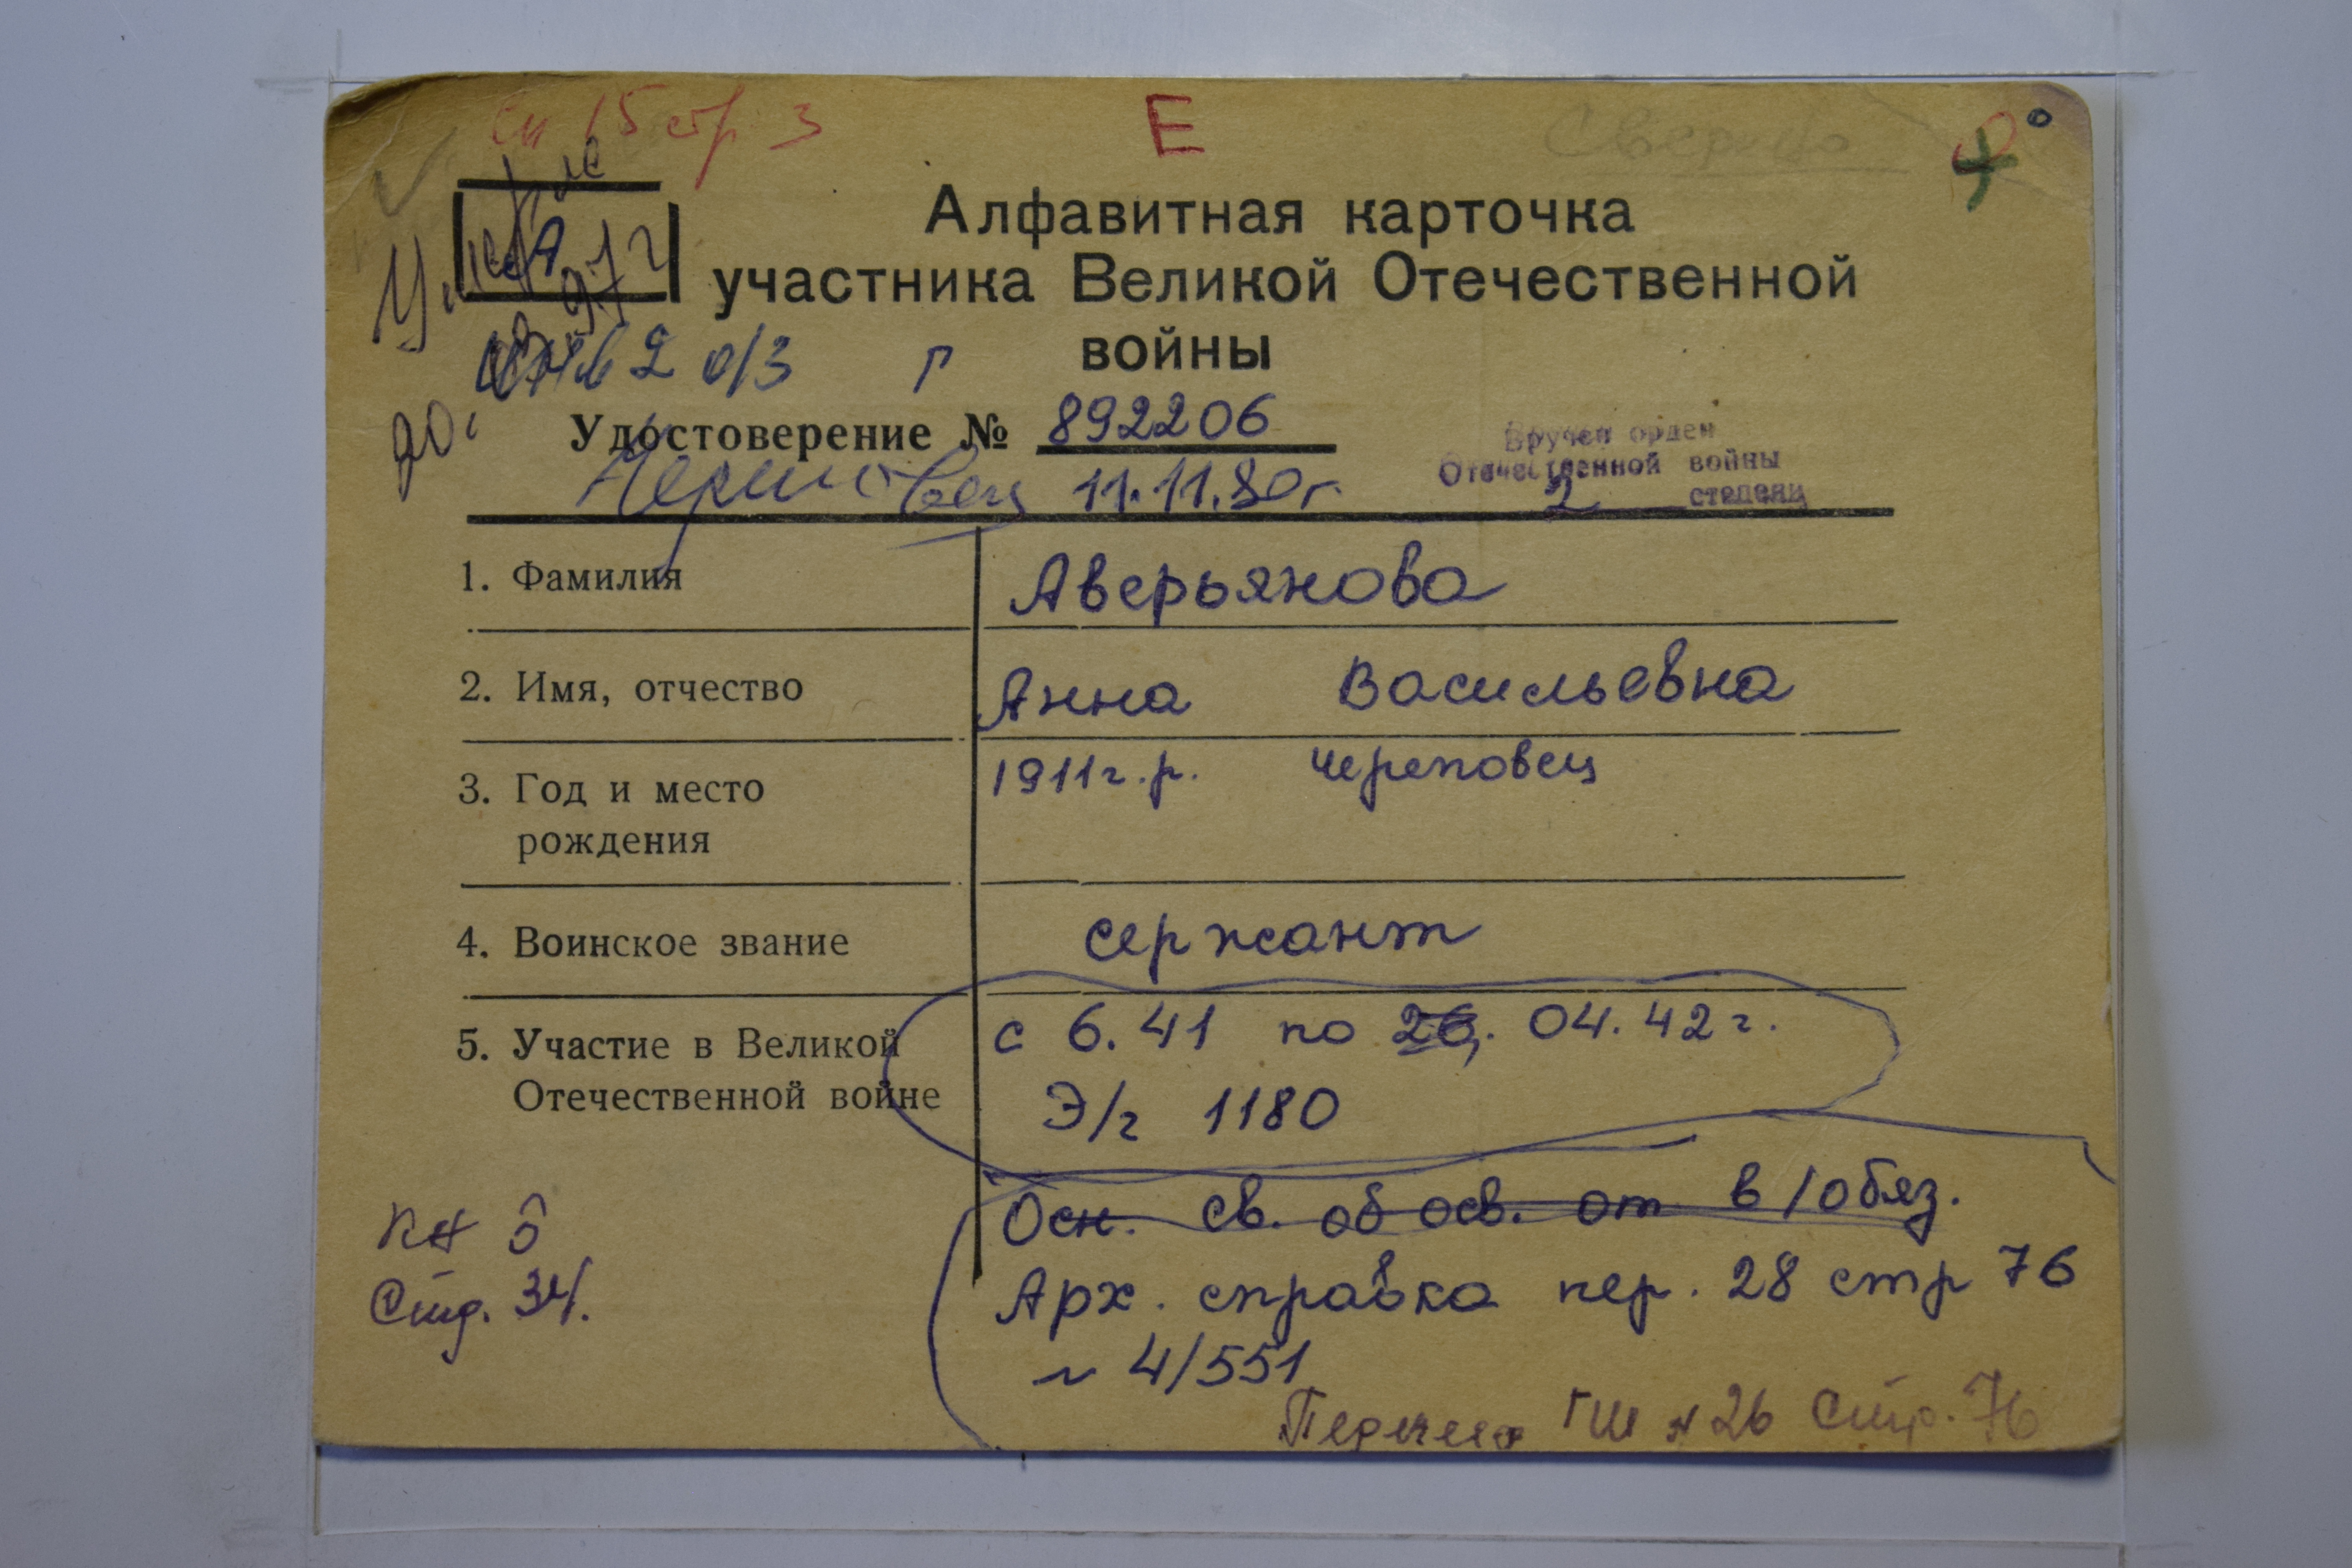 сп 15 стр 3
Е
Сверено
А
Умерла
Алфавитная карточка
участника Великой Отечественной
войны
инв 2 о/з г
Удостоверение № 892206
Череповец 11.11.80г.
Вручен орден
Отечественной войны
2 степени
1. Фамилия Аверьянова
2. Имя, отчество Анна Васильевна
3. Год и место 1911г.р. Череповец
рождения
4. Воинское звание сержант
5. Участие в Великой с 6.41 по 26. 04. 42г.
Отечественной войне Э/г 1180
Осн. св. об осв. от в/обяз.
Кн 5
Стр. 34.
Арх. справка пер. 28 стр 76
н 4/551
Перечень ГШ н 26 Стр. 76